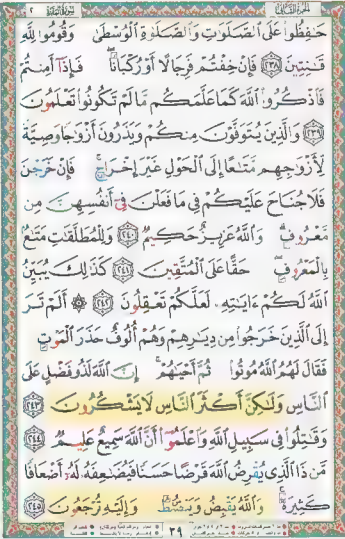 الجزء الثاني سورة البقرة ٢
حَٰفِظُوا۟ عَلَى ٱلصَّلَوَٰتِ وَٱلصَّلَوٰةِ ٱلْوُسْطَىٰ وَقُومُوا۟ لِلَّهِ
قَٰنِتِينَ ﴿٢٣٨﴾ فَإِنْ خِفْتُمْ فَرِجَالًا أَوْ رُكْبَانًا ۖ فَإِذَآ أَمِنتُمْ
فَٱذْكُرُوا۟ ٱللَّهَ كَمَا عَلَّمَكُم مَّا لَمْ تَكُونُوا۟ تَعْلَمُونَ
﴿٢٣٩﴾ وَٱلَّذِينَ يُتَوَفَّوْنَ مِنكُمْ وَيَذَرُونَ أَزْوَٰجًا وَصِيَّةً
لِّأَزْوَٰجِهِم مَّتَٰعًا إِلَى ٱلْحَوْلِ غَيْرَ إِخْرَاجٍ ۚ فَإِنْ خَرَجْنَ
فَلَا جُنَاحَ عَلَيْكُمْ فِى مَا فَعَلْنَ فِىٓ أَنفُسِهِنَّ مِن
مَّعْرُوفٍ ۗ وَٱللَّهُ عَزِيزٌ حَكِيمٌ ﴿٢٤٠﴾ وَلِلْمُطَلَّقَٰتِ مَتَٰعٌۢ
بِٱلْمَعْرُوفِ ۖ حَقًّا عَلَى ٱلْمُتَّقِينَ ﴿٢٤١﴾ كَذَٰلِكَ يُبَيِّنُ
ٱللَّهُ لَكُمْ ءَايَٰتِهِۦ لَعَلَّكُمْ تَعْقِلُونَ ﴿٢٤٢﴾ ۞ أَلَمْ تَرَ
إِلَى ٱلَّذِينَ خَرَجُوا۟ مِن دِيَٰرِهِمْ وَهُمْ أُلُوفٌ حَذَرَ ٱلْمَوْتِ
فَقَالَ لَهُمُ ٱللَّهُ مُوتُوا۟ ثُمَّ أَحْيَٰهُمْ ۚ إِنَّ ٱللَّهَ لَذُو فَضْلٍ عَلَى
ٱلنَّاسِ وَلَٰكِنَّ أَكْثَرَ ٱلنَّاسِ لَا يَشْكُرُونَ ﴿٢٤٣﴾
وَقَٰتِلُوا۟ فِى سَبِيلِ ٱللَّهِ وَٱعْلَمُوٓا۟ أَنَّ ٱللَّهَ سَمِيعٌ عَلِيمٌ ﴿٢٤٤﴾
مَّن ذَا ٱلَّذِى يُقْرِضُ ٱللَّهَ قَرْضًا حَسَنًا فَيُضَٰعِفَهُۥ لَهُۥٓ أَضْعَافًا
كَثِيرَةً ۚ وَٱللَّهُ يَقْبِضُ وَيَبْصُۜطُ وَإِلَيْهِ تُرْجَعُونَ ﴿٢٤٥﴾
٣٩